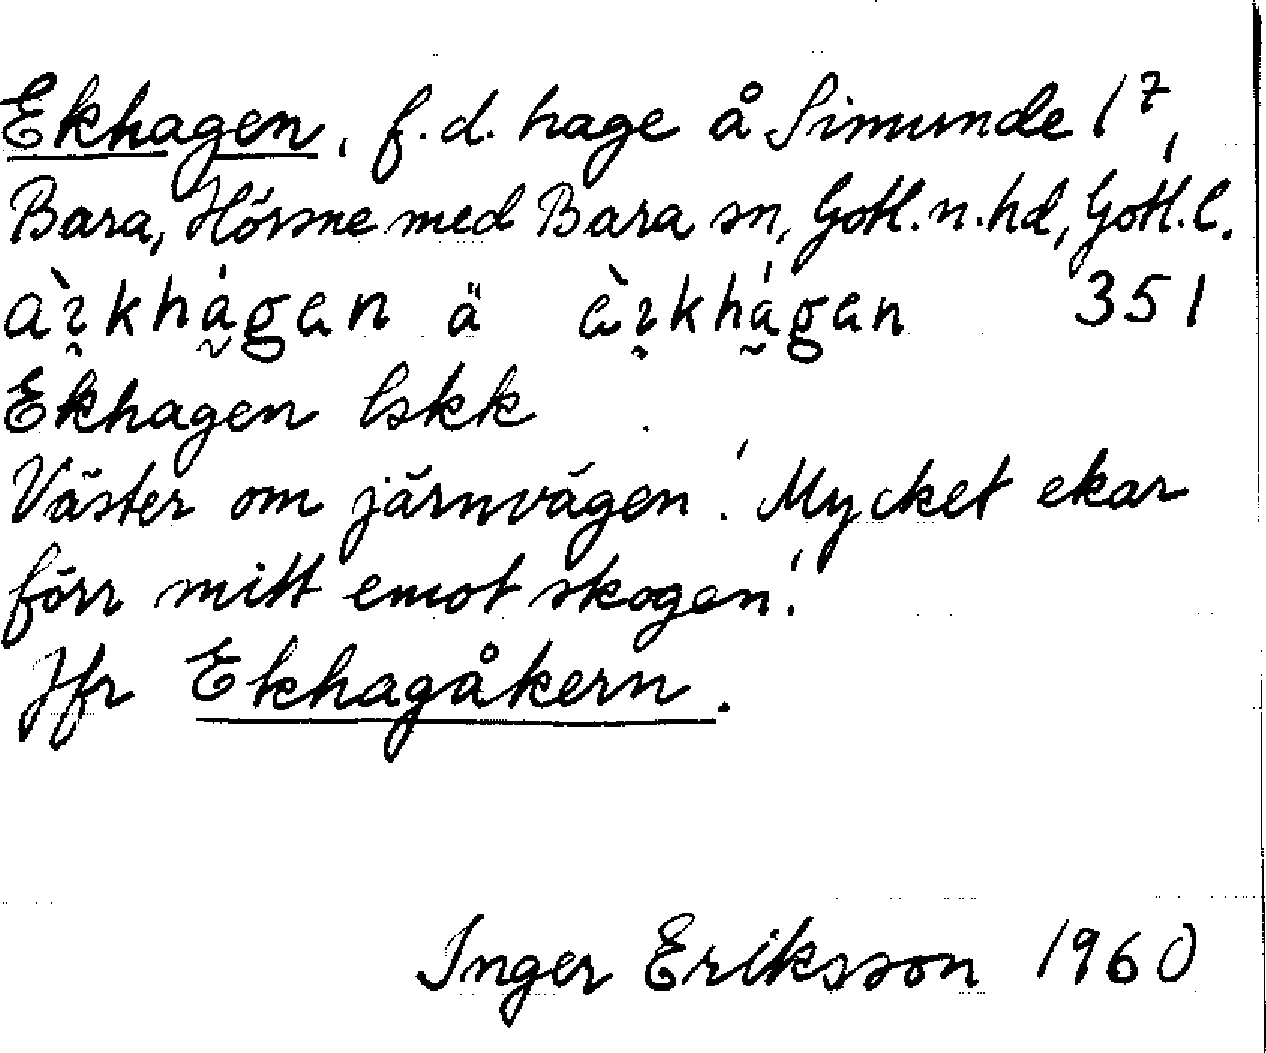 Ekhagen, f.d. hage å Simunde 1⁷,
Bara, Hörsne med Bara sn, Gotl. n. hd, Gotl. l.
ä 351
Ekhagen lskk
Väster om järnvägen. ' Mycket ekar
förr mitt emot skogen.'
Jfr Ekhagåkern.
Inger Eriksson 1960